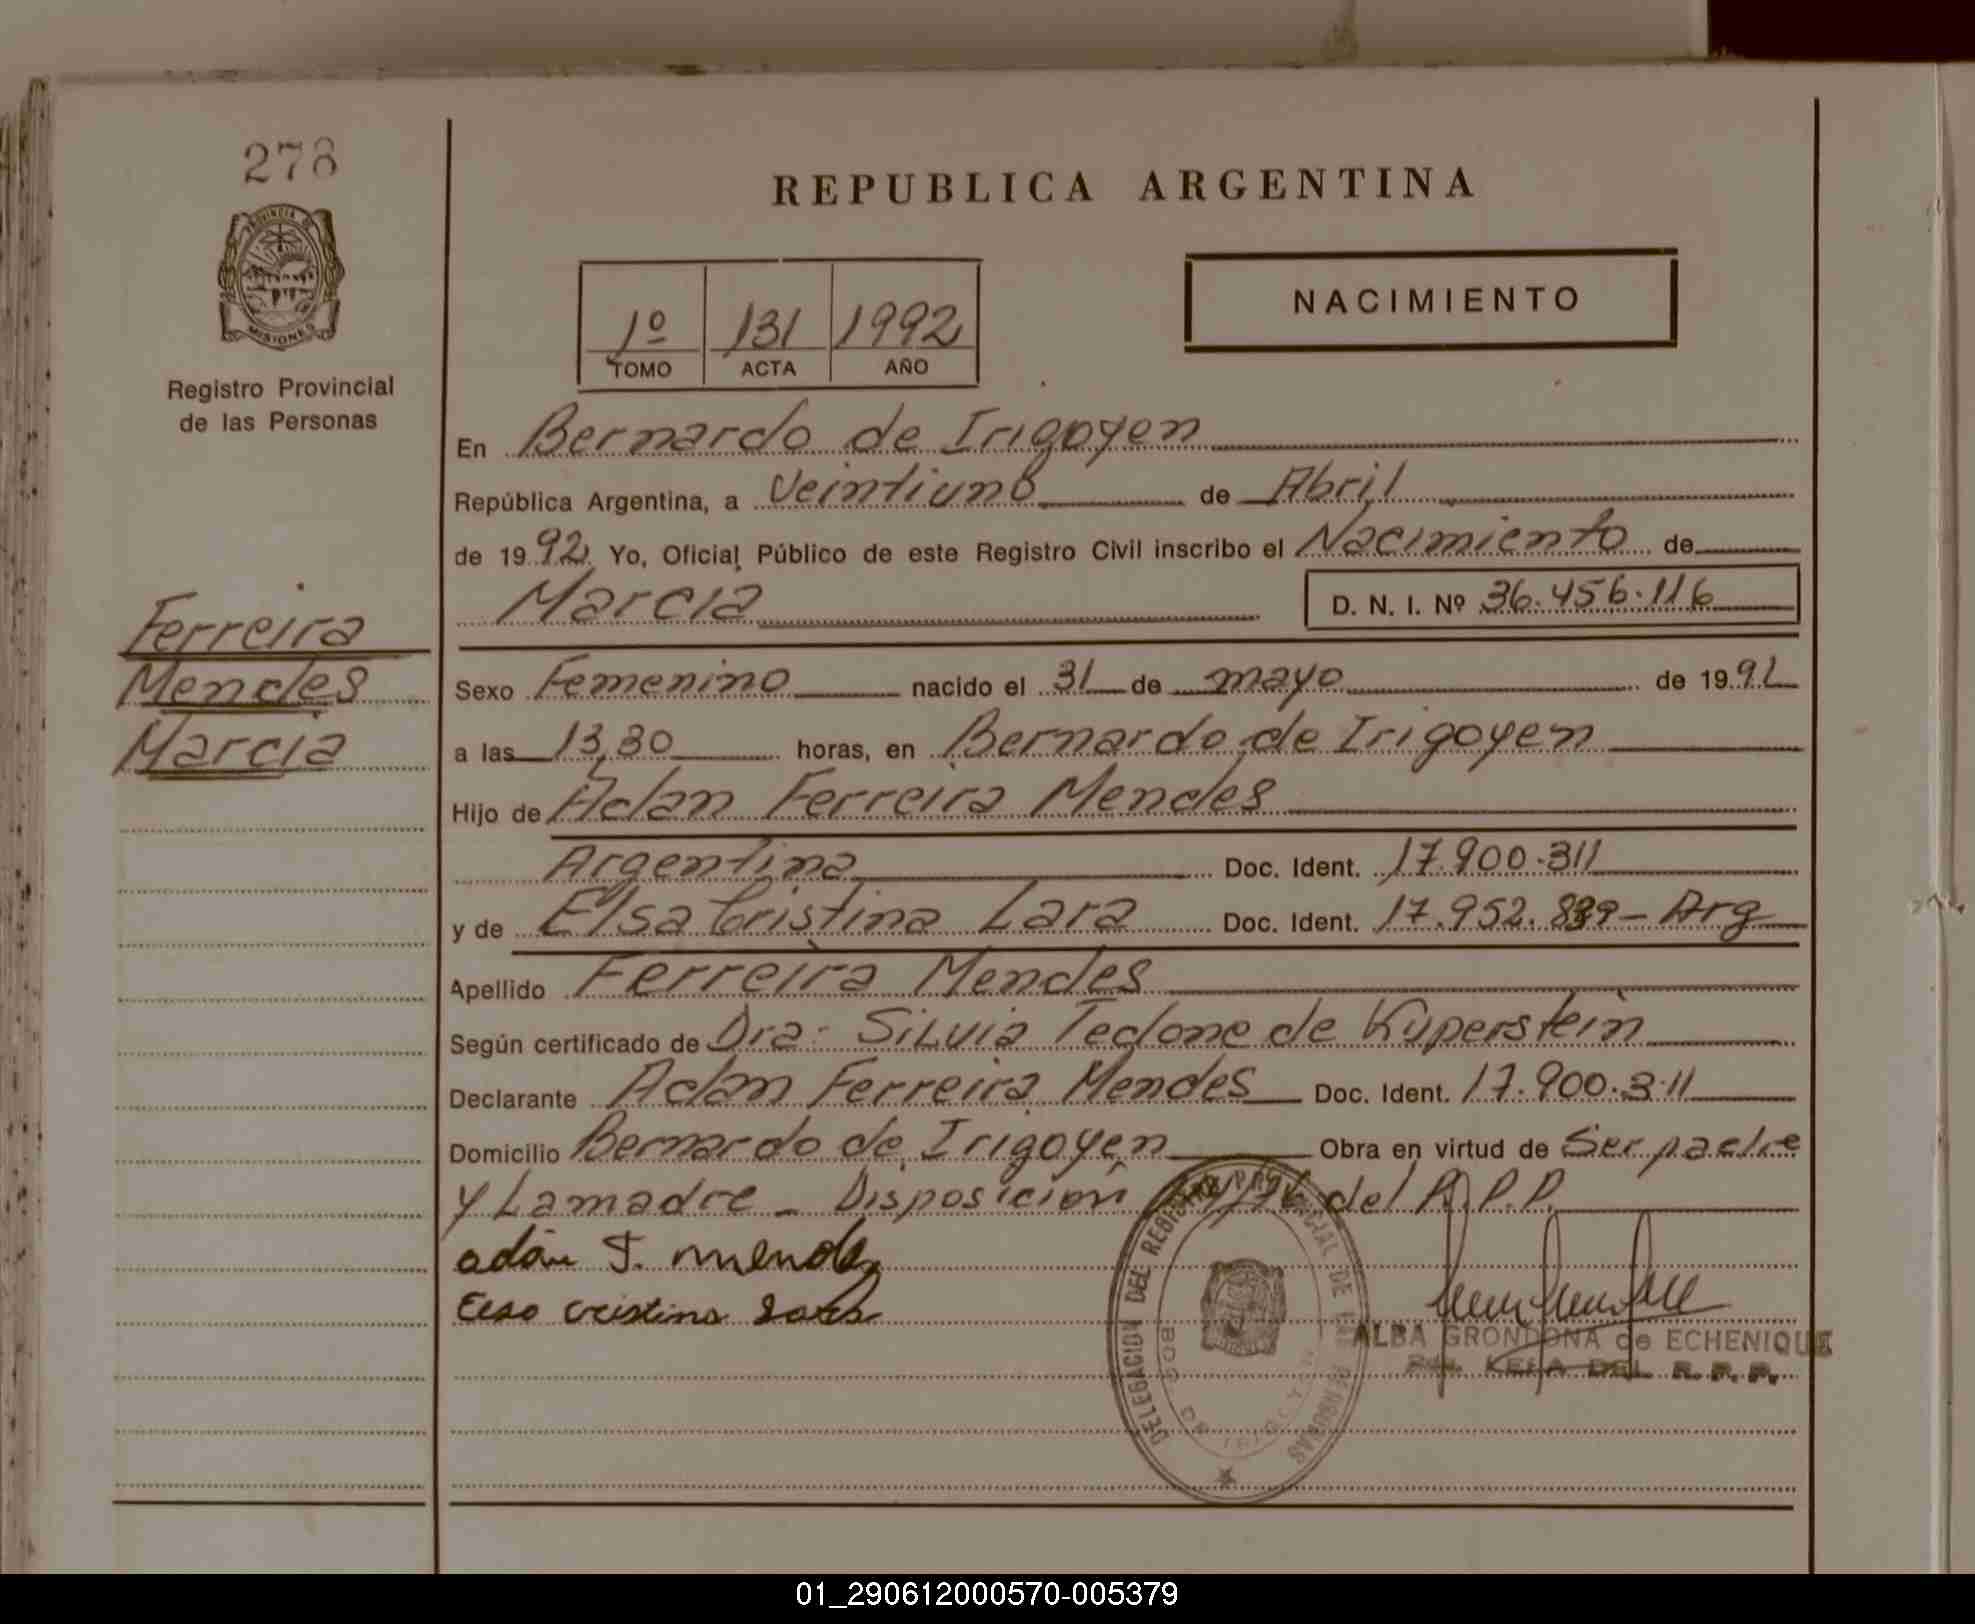 278
REPUBLICA ARGENTINA
PROVINCIA DE
MISIONES
Registro Provincial
de las Personas
1º 131 1992
TOMO ACTA AÑO
NACIMIENTO
En Bernardo de Irigoyen
República Argentina, a Veintiuno de Abril
de 1992 Yo, Oficial Público de este Registro Civil inscribo el Nacimiento de
Marcia D. N. I. Nº 36.456.116
Ferreira
Mendes
Marcia
Sexo Femenino nacido el 31 de mayo de 1991
a las 13,30 horas, en Bernardo de Irigoyen
Hijo de Adan Ferreira Mendes
Argentina Doc. Ident. 17.900.311
y de Elsa Cristina Lara Doc. Ident. 17.952. - Arg
Apellido Ferreira Mendes
Según certificado de Dra. Silvia Tedone de Kuperstein
Declarante Adan Ferreira Mendes Doc. Ident. 17.900.311
Domicilio Bernardo de Irigoyen Obra en virtud de Ser padre
y La madre - Disposición del R.P.P.
adán F. mendez
Elsa cristina Lara
DELEGACION DEL REGISTRO PROVINCIAL DE LAS PERSONAS
BDO. DE IRIGOYEN
ALBA GRONDONA de ECHENIQUE
DEL R. P. P.
01_290612000570-005379